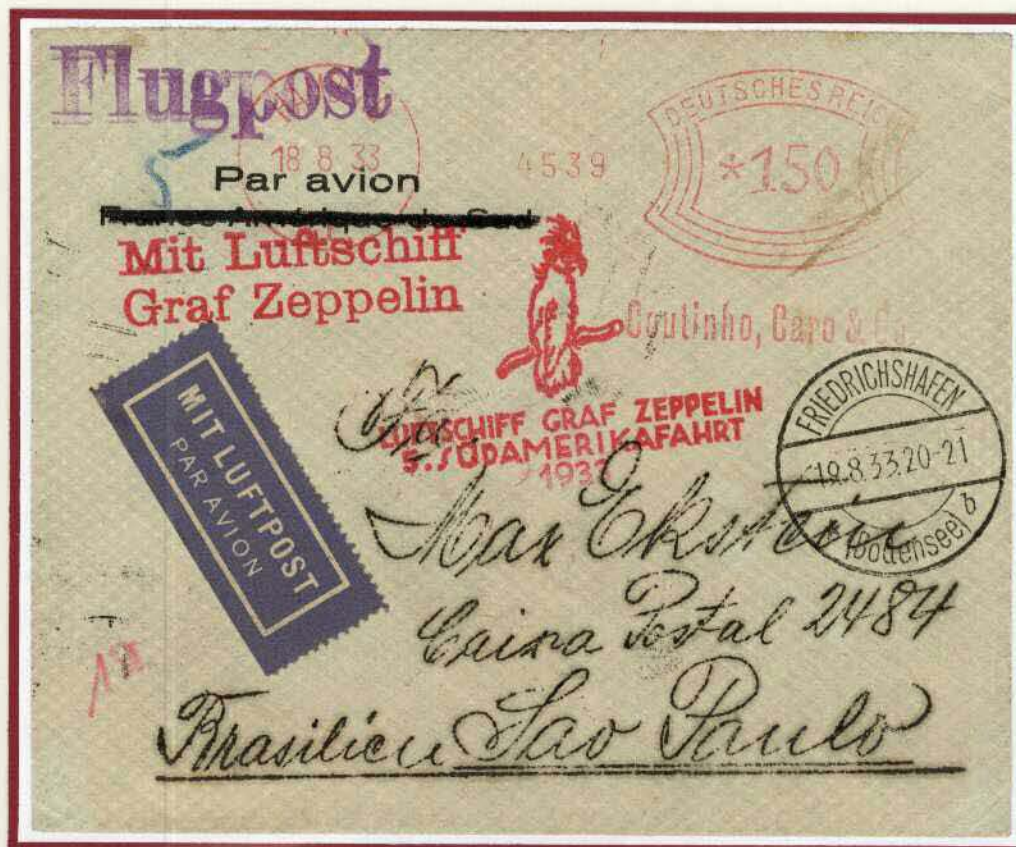 Flugpost
18 8 33
4539
DEUTSCHES REICH
*150
Par avion
Mit Luftschiff
Graf Zeppelin
Coutinho, Caro & Co.
LUFTSCHIFF GRAF ZEPPELIN
5. SÜDAMERIKAFAHRT
1933
MIT LUFTPOST
PAR AVION
FRIEDRICHSHAFEN
19.8.33.20-21
(Bodensee) b
Max Ekstein
Caixa Postal 2484
Brasilien Sao Paulo